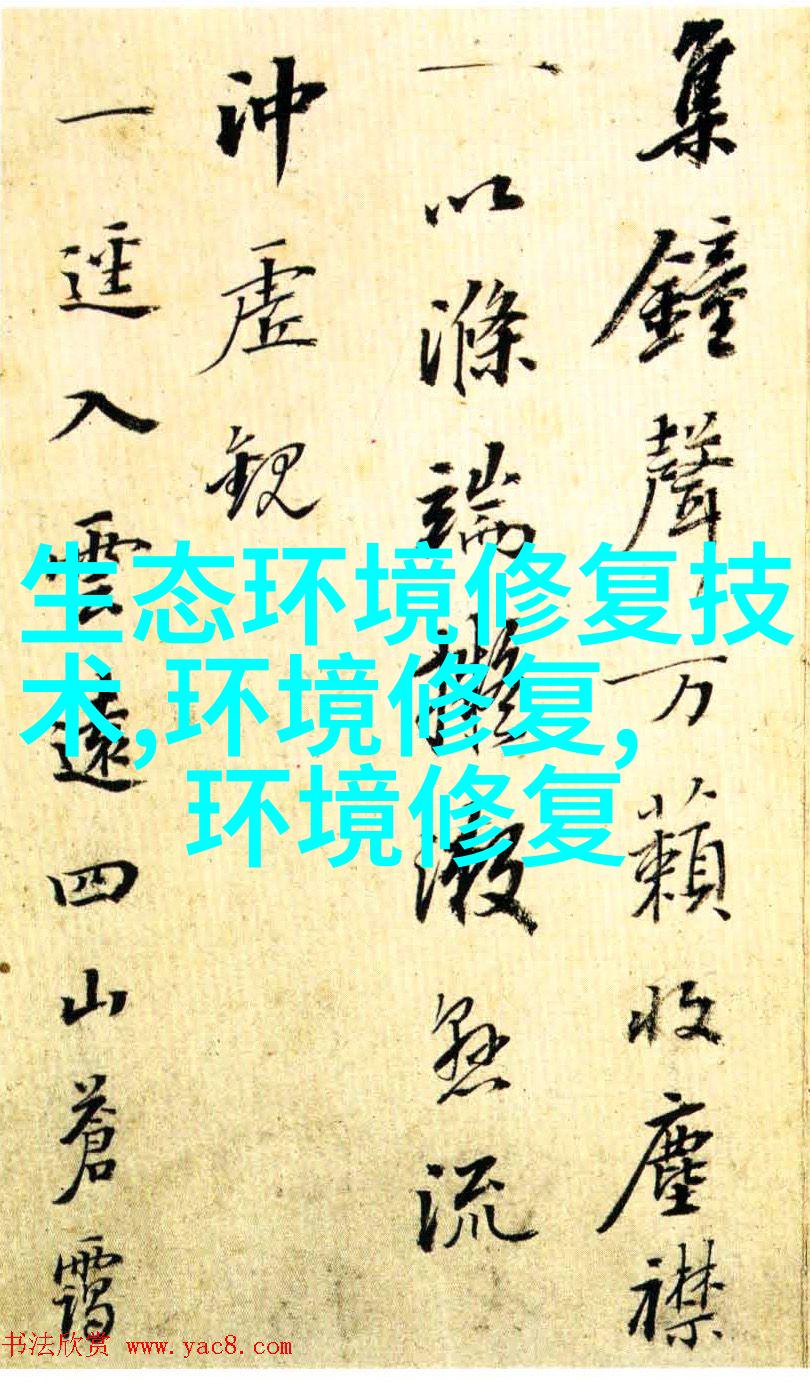 集鐘聲万籟收塵襟
一以滌端龔激懸流
沖虛觀
一逕入雲遠四山蒼靄
生态环境修复技
术,环境修复,
环境修复
书法欣赏 www.yac8.com